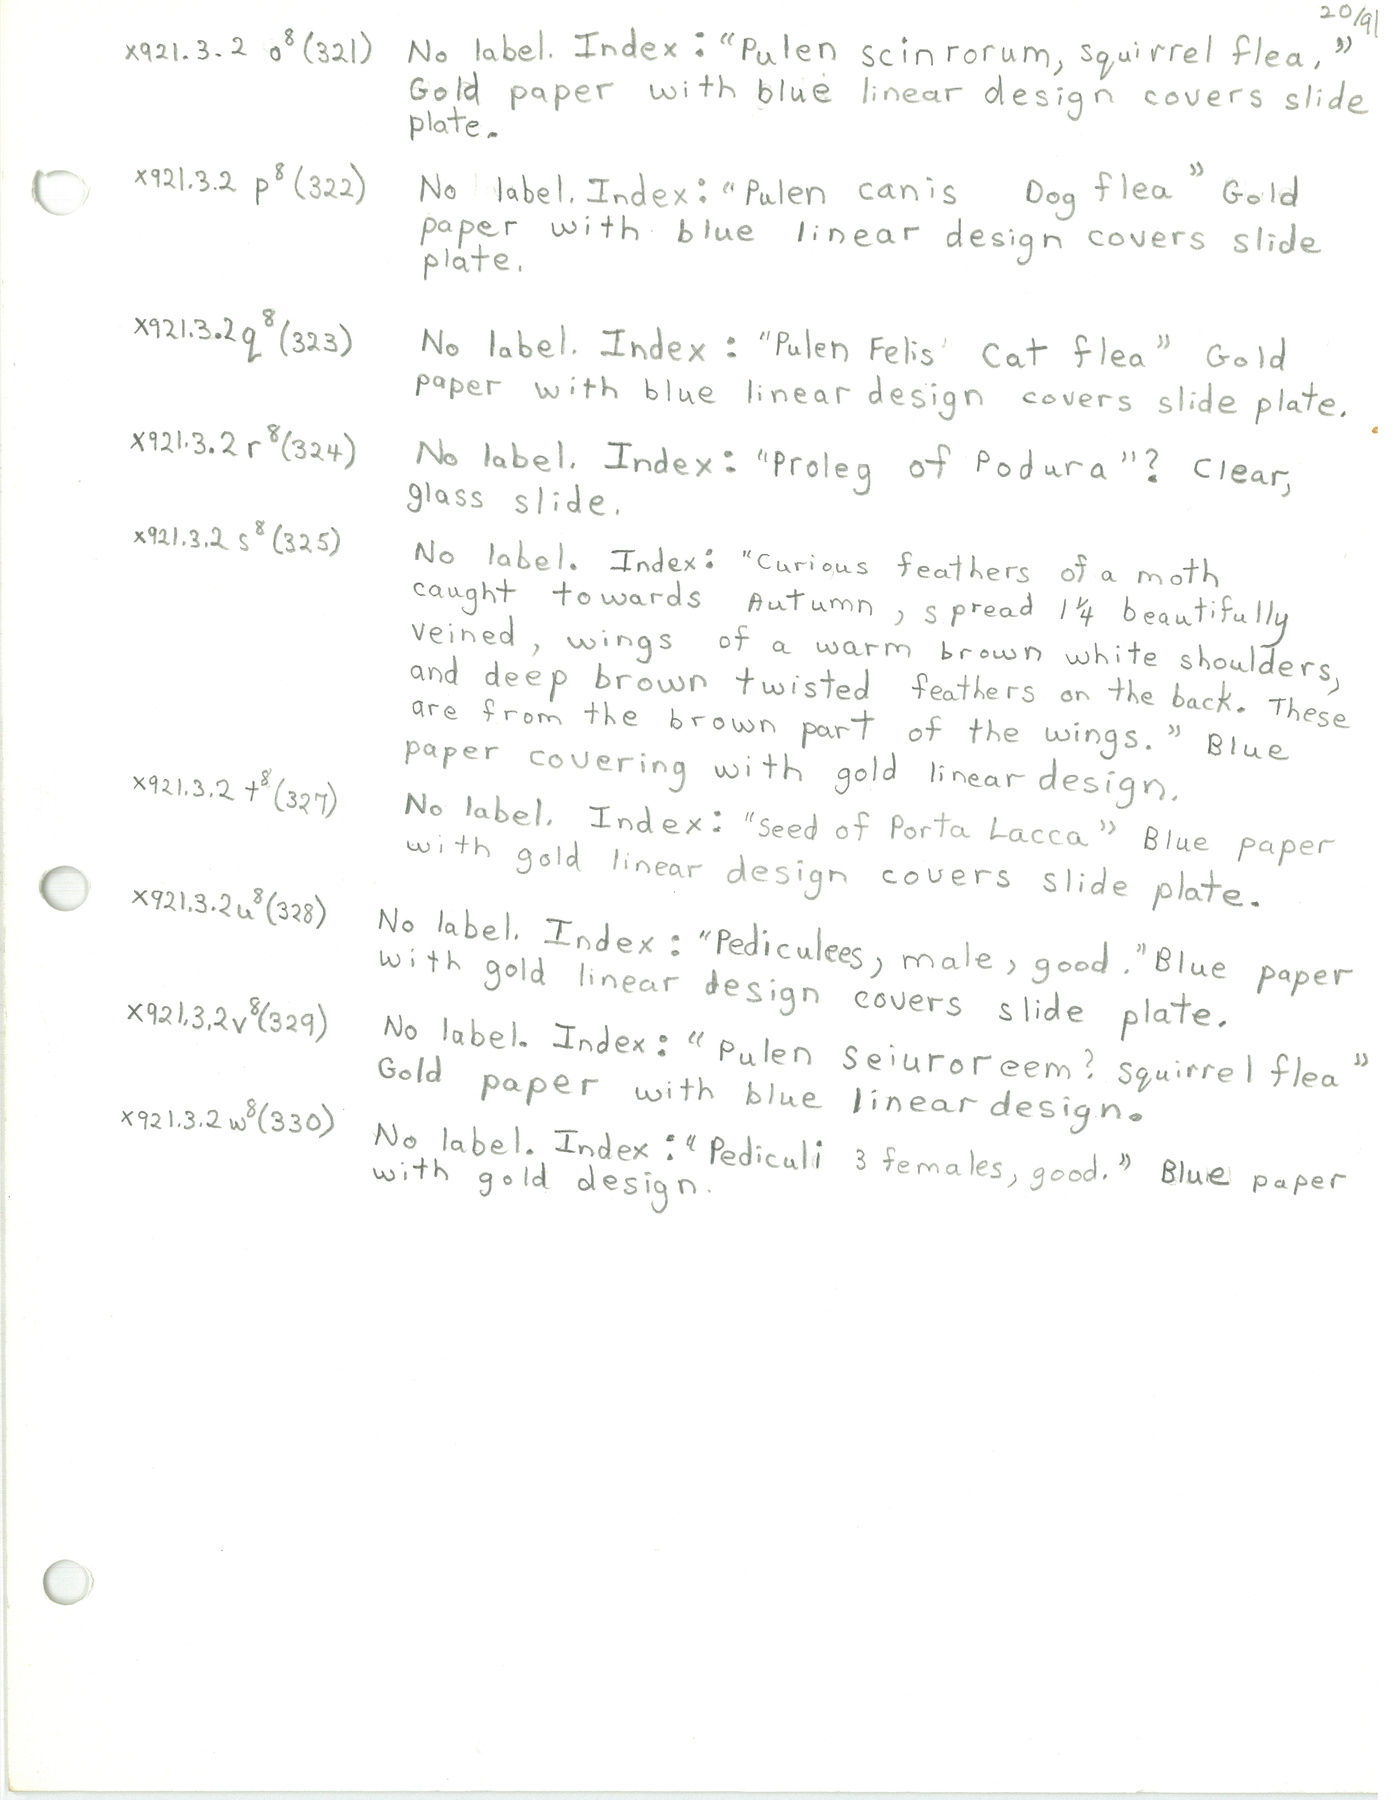 20/91
x921.3.2 o⁸(321) No label. Index: "Pulen scinrorum, squirrel flea,"
Gold paper with blue linear design covers slide
plate.
x921.3.2 p⁸(322) No label. Index: "Pulen canis Dog flea" Gold
paper with blue linear design covers slide
plate.
x921.3.2 q⁸(323) No label. Index: "Pulen Felis Cat flea" Gold
paper with blue linear design covers slide plate.
x921.3.2 r⁸(324) No label. Index: "Proleg of Podura"? Clear,
glass slide.
x921.3.2 s⁸(325) No label. Index: "Curious feathers of a moth
caught towards Autumn, spread 1¼ beautifully
veined, wings of a warm brown white shoulders,
and deep brown twisted feathers on the back. These
are from the brown part of the wings." Blue
paper covering with gold linear design.
x921.3.2 t⁸(327) No label. Index: "Seed of Porta Lacca" Blue paper
with gold linear design covers slide plate.
x921.3.2 u⁸(328) No label. Index: "Pediculees, male, good." Blue paper
with gold linear design covers slide plate.
x921.3.2 v⁸(329) No label. Index: "Pulen Seiuroreem? Squirrel flea"
Gold paper with blue linear design.
x921.3.2 w⁸(330) No label. Index: "Pediculi 3 females, good." Blue paper
with gold design.